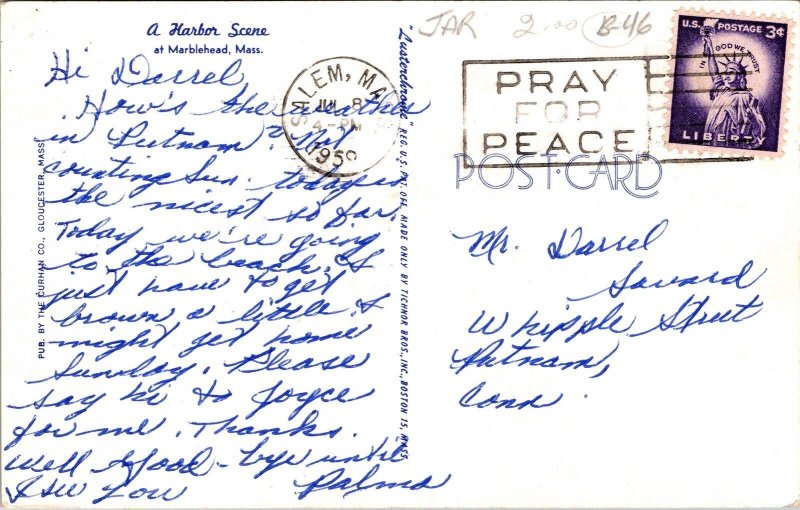 A Harbor Scene
at Marblehead, Mass.
Hi Darrel
How's the weather
in Putnam? Not
counting Sun. today is
the nicest so far.
Today we're going
to the beach. I
just have to get
brown a little. I
might get home
Sunday. Please
say hi to Joyce
for me. Thanks.
Well Good-bye until
I see you Palma
PUB. BY THE CURHAN CO., GLOUCESTER, MASS.
"Lusterchrome" REG. U.S. PAT. OFF. MADE ONLY BY TICHNOR BROS., INC., BOSTON 15, MASS.
JAR 2.00 B-46
SALEM, MA
JUL 8
4 PM
1959
PRAY
FOR
PEACE
U.S. POSTAGE 3¢
IN GOD WE TRUST
LIBERTY
POST CARD
Mr. Darrel
Savard
Whipple Street
Putnam,
Conn.